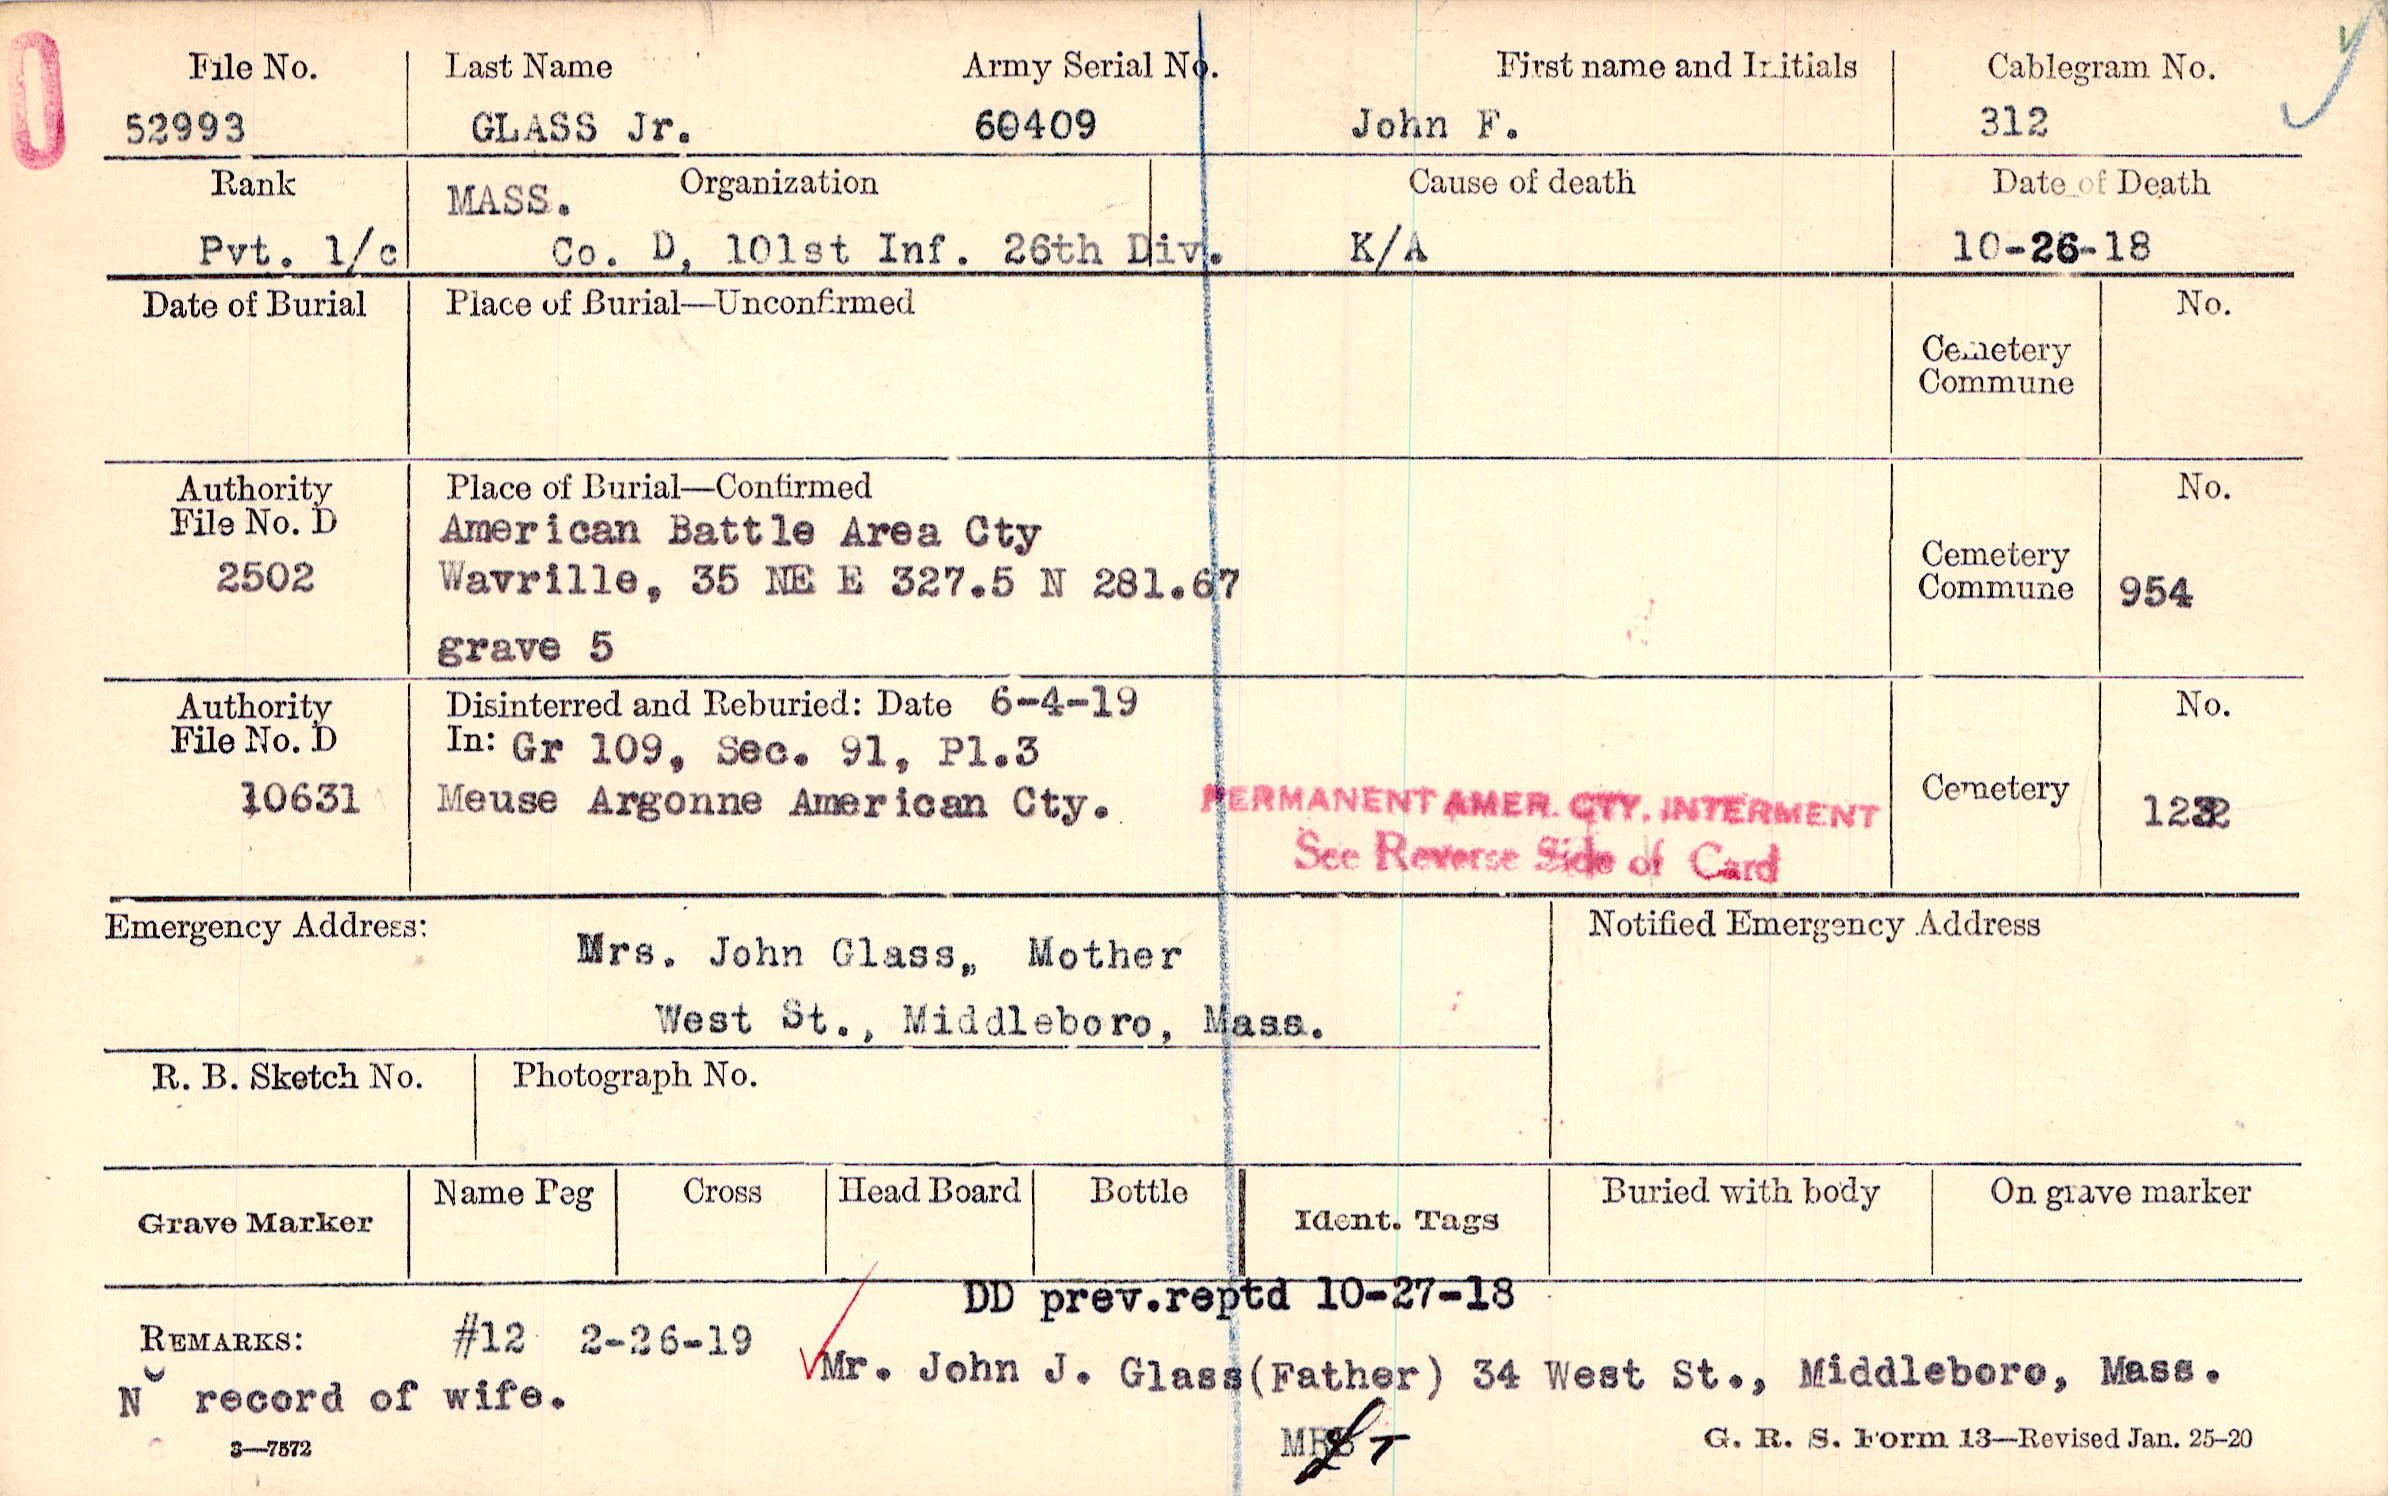 File No. Last Name Army Serial No. First name and Initials Cablegram No.
52993 GLASS Jr. 60409 John F. 312
Rank Organization Cause of death Date of Death
MASS.
Pvt. 1/c Co. D, 101st Inf. 26th Div. K/A 10-26-18
Date of Burial Place of Burial—Unconfirmed No.
Cemetery
Commune
Authority Place of Burial—Confirmed No.
File No. D American Battle Area Cty
2502 Wavrille, 35 NE E 327.5 N 281.67
Cemetery
Commune 954
grave 5
Authority Disinterred and Reburied: Date 6-4-19 No.
File No. D In: Gr 109, Sec. 91, Pl.3
10631 Meuse Argonne American Cty. PERMANENT AMER. CTY. INTERMENT Cemetery 1232
See Reverse Side of Card
Emergency Address: Notified Emergency Address
Mrs. John Glass, Mother
West St., Middleboro, Mass.
R. B. Sketch No. Photograph No.
Grave Marker Name Peg Cross Head Board Bottle Ident. Tags Buried with body On grave marker
DD prev.reptd 10-27-18
REMARKS: #12 2-26-19
Mr. John J. Glass(Father) 34 West St., Middleboro, Mass.
N record of wife.
3—7572 G. R. S. Form 13—Revised Jan. 25-20